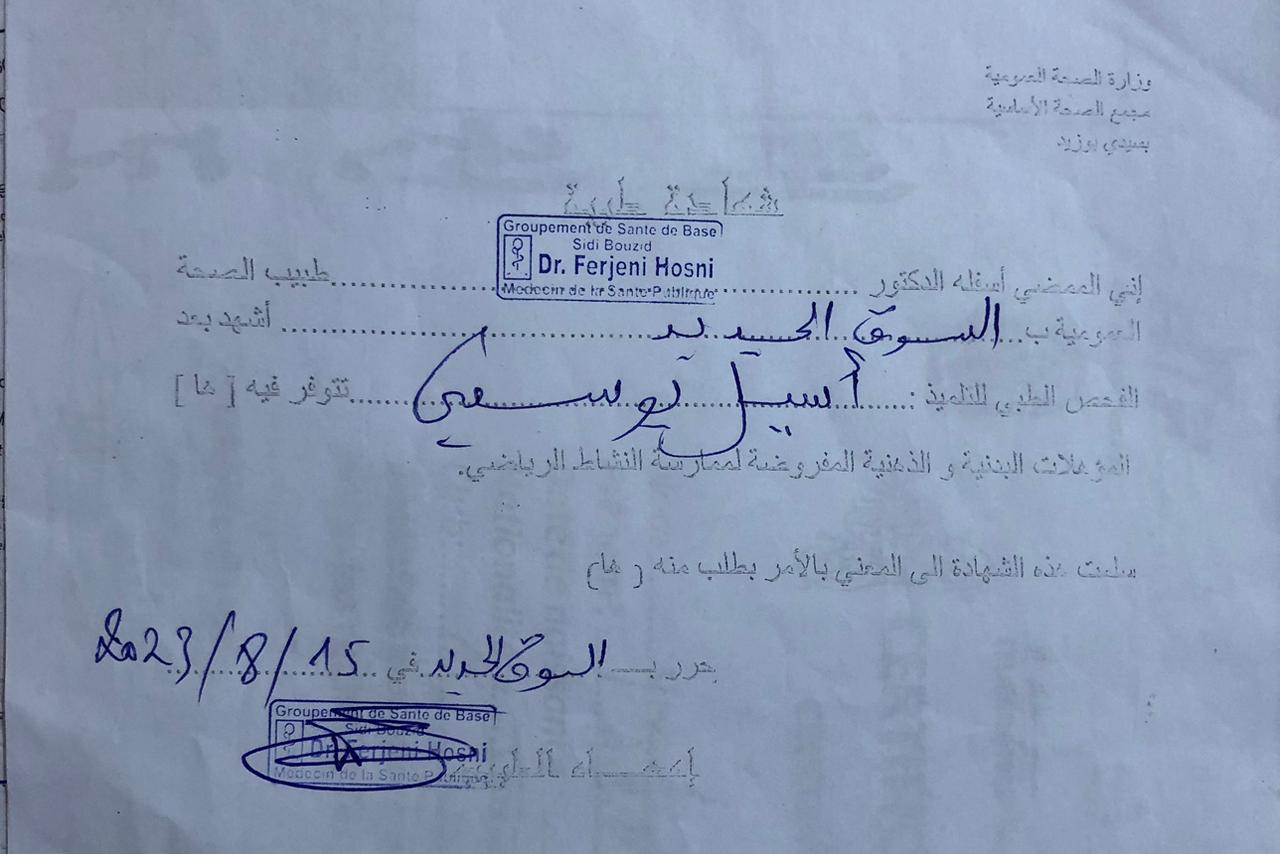 وزارة الصحة العمومية
مجمع الصحة الأساسية
بسيدي بوزيد
شهادة طبية
Groupement de Sante de Base
Sidi Bouzid
Dr. Ferjeni Hosni
Medecin de la Sante Publique
إني الممضي أسفله الدكتور ........ طبيب الصحة
العمومية ب... السوق الجديد ........ أشهد بعد
الفحص الطبي للتلميذ : أسيل يوسفي ........ تتوفر فيه [ ها ]
المؤهلات البدنية و الذهنية المفروضة لممارسة النشاط الرياضي.
سلمت هذه الشهادة الى المعني بالأمر بطلب منه ( ها)
حرر بـ السوق الجديد في 2023/8/15
إمضاء الطبيب
Groupement de Sante de Base
Sidi Bouzid
Dr. Ferjeni Hosni
Medecin de la Sante Publique